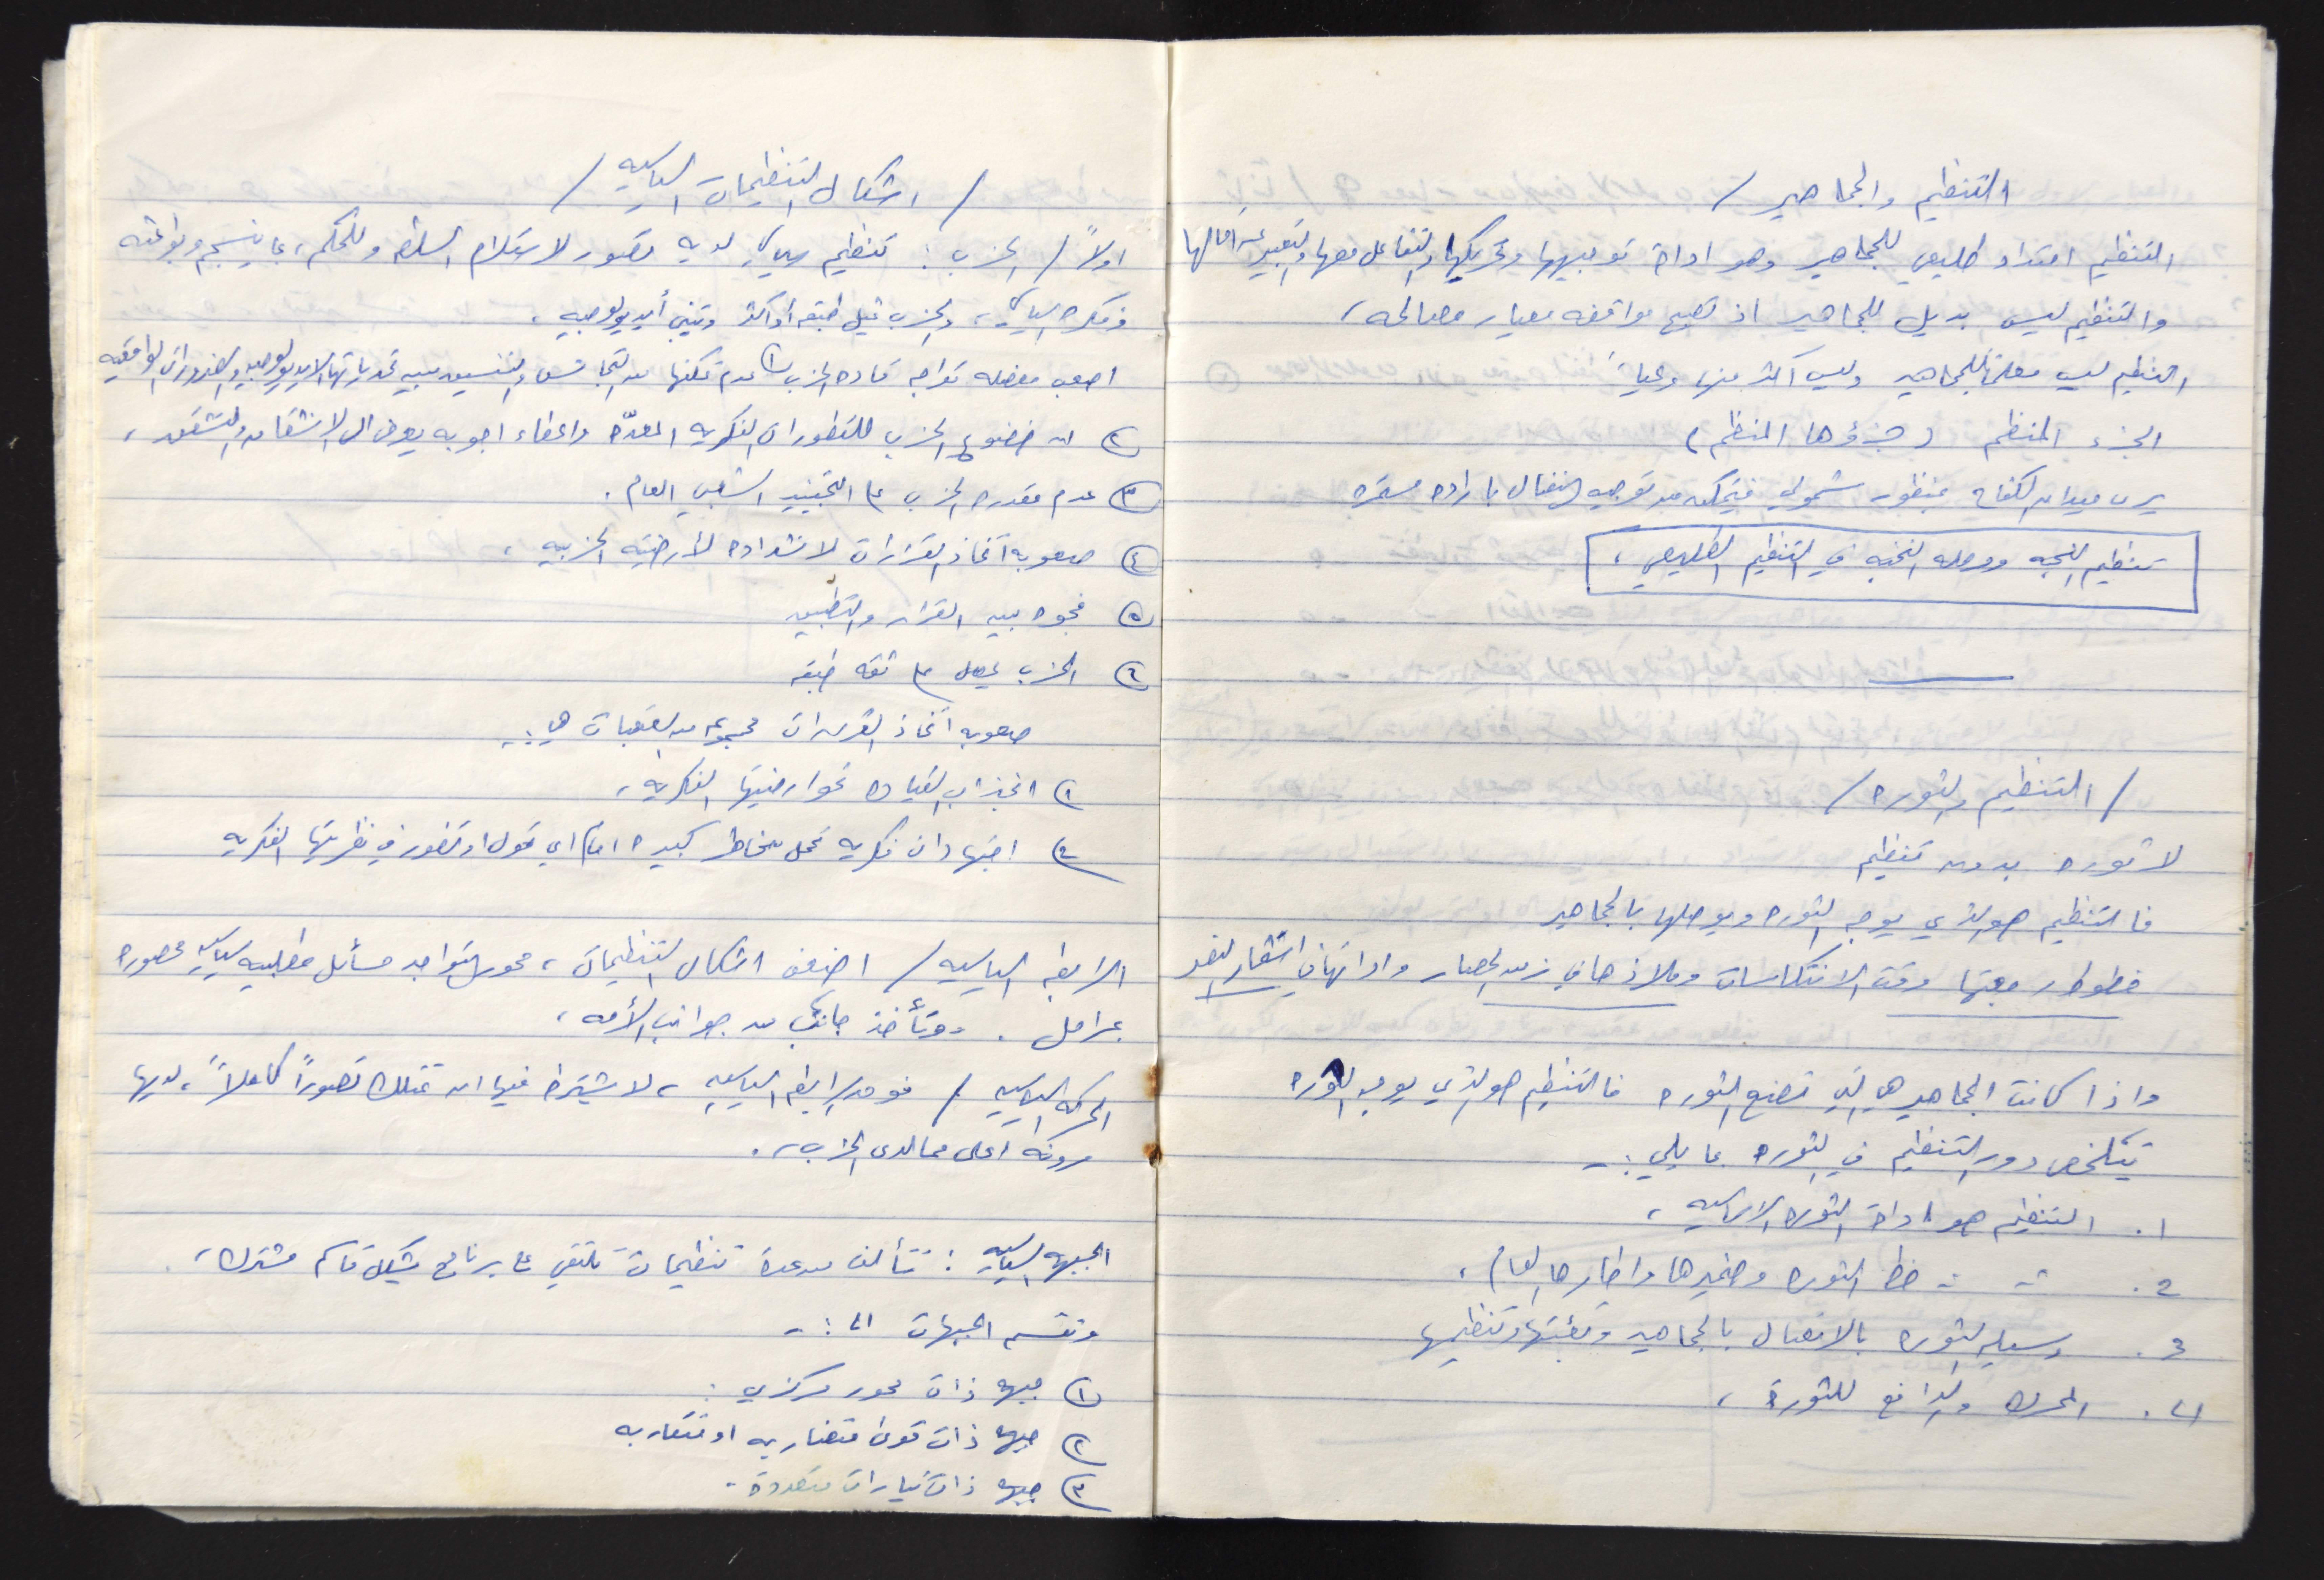 التنظيم والجماهير /
التنظيم امتداد طليعي للجماهير وهو اداة توجيهها وتحريكها والتفاعل معها والتعبير عن امالها
والتنظيم ليس بديل للجماهير اذ تصبح مواقفه معيار مصالحه،
التنظيم ليس معلماً للجماهير وليس اكثر منها وعياً
الجزء المنظم (جزؤها المنظم)
يرى ميدان الكفاح بمنظور شمولي فيتمكن من توجيه النضال بإراده مستمره
تنظيم النخبه ووصله النخبه في التنظيم الطليعي،
/ التنظيم والثوره /
لا ثوره بدون تنظيم
فالتنظيم هو الذي يوجه الثوره ويوصلها بالجماهير
وقت الانتكاسات وملاذها في زمن الحصار واداتها في استثمار النصر
واذا كانت الجماهير هي التي تصنع الثوره فالتنظيم هو الذي يوجه الثوره
يتلخص دور التنظيم في الثوره بما يلي :-
١. التنظيم هو اداة الثوره الاساسيه،
2. " " خط الثوره وضميرها واطارها العام،
3. وسيلة الثوره بالاتصال بالجماهير وتعبئتها وتنظيمها
٤. المحرك والدافع للثورة،
/ اشكال التنظيمات السياسيه /
اولاً / الحزب : تنظيم سياسي لديه تصور لاستلام السلطه وللحكم، بما ينسجم وبواعثه
وفكره السياسي، والحزب يمثل طبقه أو اكثر ويتبنى أيديولوجيه،
اصعب معضله تواجه قادة الحزب ١) عدم تمكنها من التجانس والتنسيق بين تحدياتها الايديولوجيه والضرورات الواقعيه
٢) ان خضوع الحزب للتطورات الفكريه المعدّه واعطاء اجوبه يعرض الى الانشقاق والتشقق،
٣) عدم مقدره الحزب على التجنيد الشعبي العام.
٤) صعوبه اتخاذ القرارات لانشداده لأرضيته الحزبيه،
٥) فجوه بين القرار والتطبيق
٦) الحزب يحصل على ثقه طبقه
صعوبه اتخاذ القرارات مجموعه من العقبات هي :-
١) انجذاب القياده نحو ارضيتها الفكريه،
٢) اجتهادات فكريه تحمل مخاطر كبيره امام اي تحول او تطور في نظريتها الفكريه
الرابطه السياسيه / اضعف اشكال التنظيمات، محور التواجد مسائل مطلبيه سياسيه محصوره
بمراحل. وتأخذ جانب من جوانب الأمه،
الحركه السياسيه / فوق الرابطه السياسيه، لا يشترط فيها ان تمتلك تصوراً كاملاً، لديها
مرونه اعلى مما لدى الحزب.
الجبهه السياسيه : تتألف من عدة تنظيمات تلتقي على برنامج يشكل قاسم مشترك،
وتقسم الجبهات الى :-
١) جبهه ذات محور مركزي :
٢) جبهه ذات قوى متضاربه او متقاربه
٣) جبهه ذات تيارات متعددة.